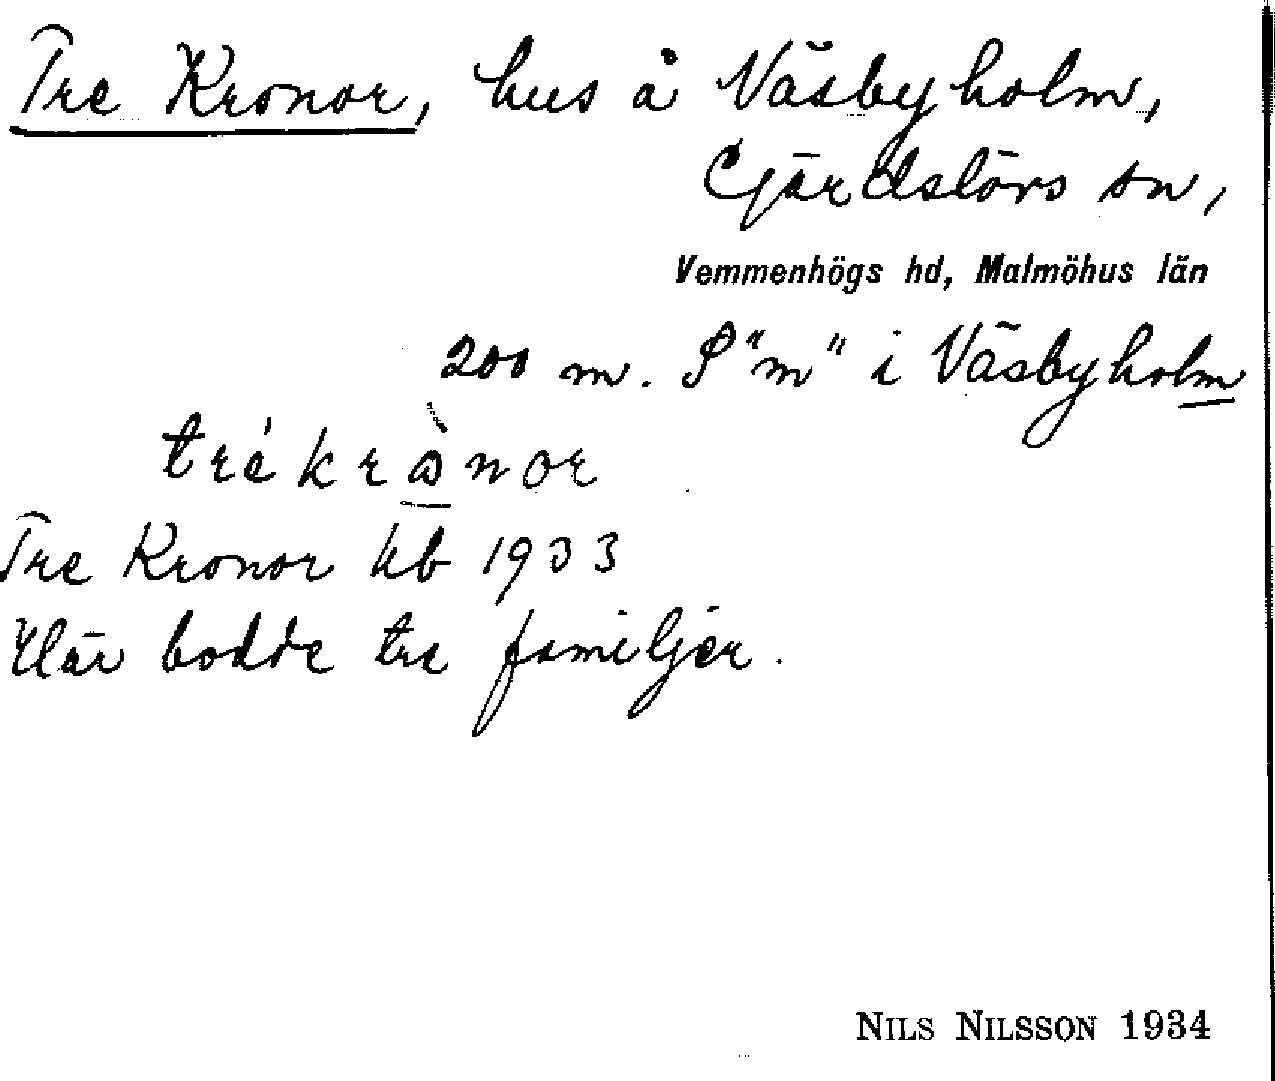 Tre Kronor, hus å Väsbyholm,
Gärdslövs sn,
Vemmenhögs hd, Malmöhus län
200 m. S "m" i Väsbyholm
trékrònor
Tre Kronor kb 1933
Här bodde tre familjer.
NILS NILSSON 1934